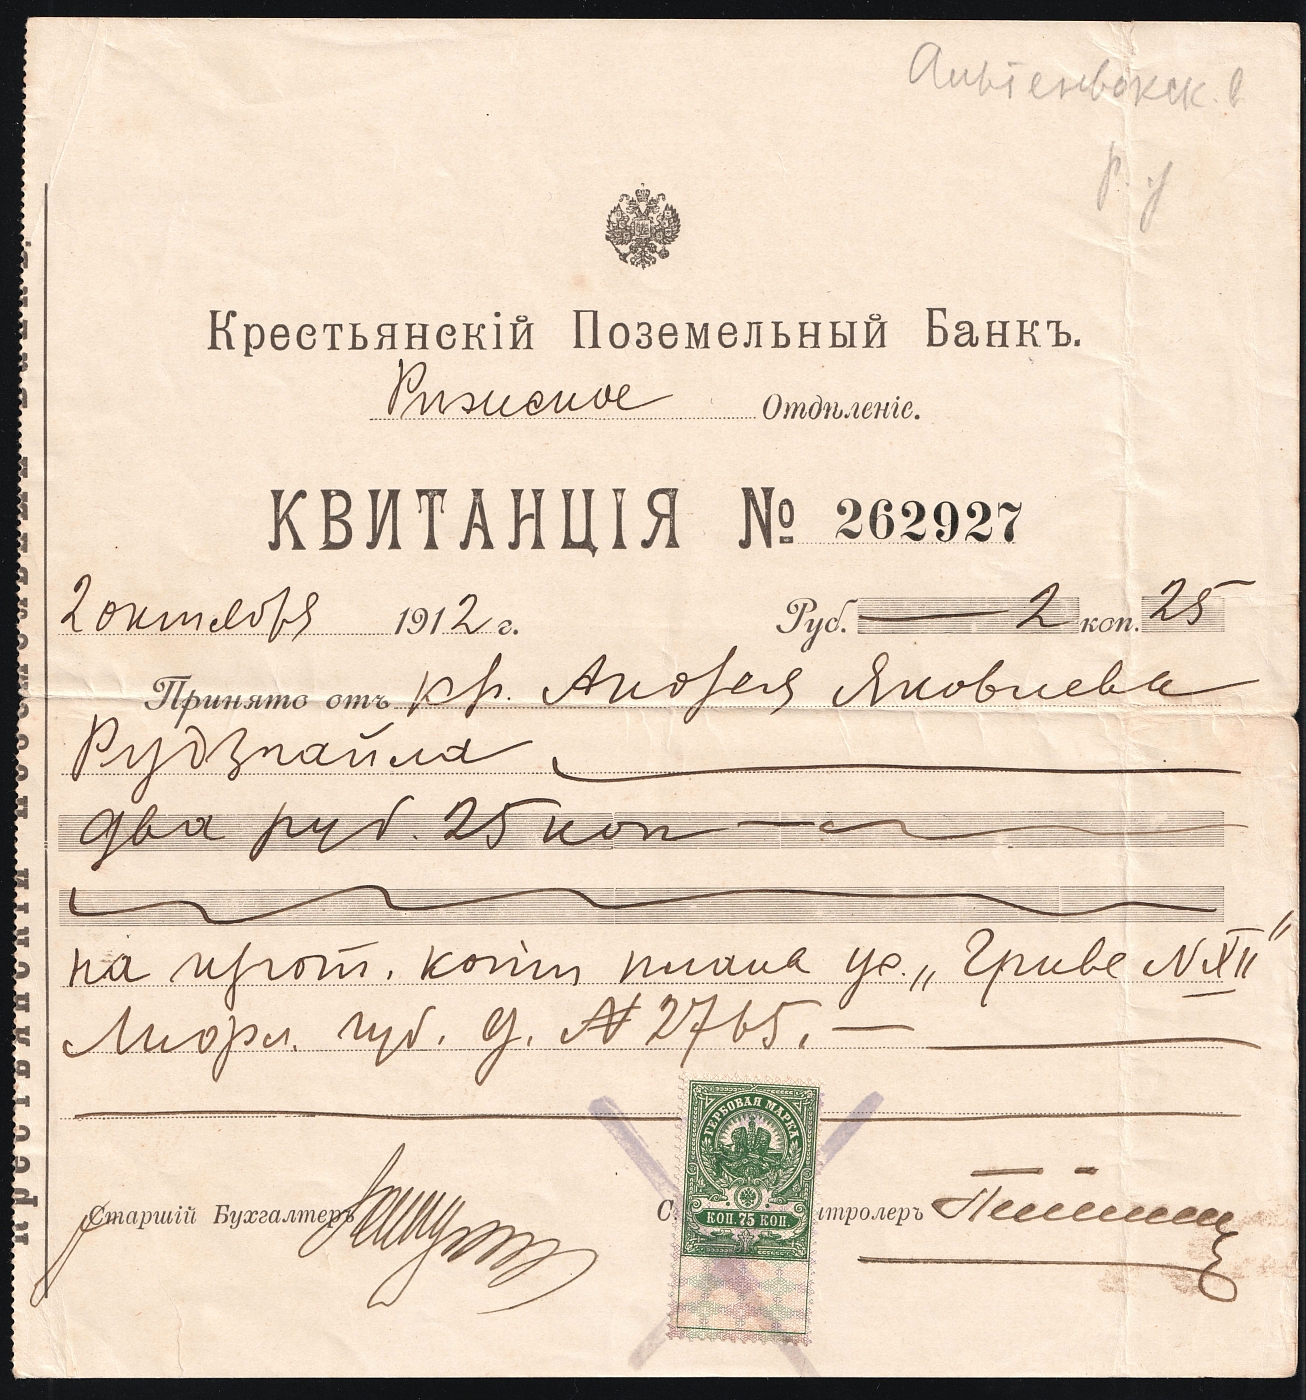 Крестьянскій Поземельный Банкъ.
Рижское Отдѣленіе.
КВИТАНЦІЯ № 262927
2 октября 1912 г. Руб. 2 коп. 25
Принято отъ кр. Андрея Яковлева
Рудзпайла
два руб. 25 коп
на изгот. копіи плана уч. „Гриве N XII"
Лифл. губ. д. № 2765.
ГЕРБОВАЯ МАРКА
КОП. 75 КОП.
Старшій Бухгалтеръ С. нтролеръ